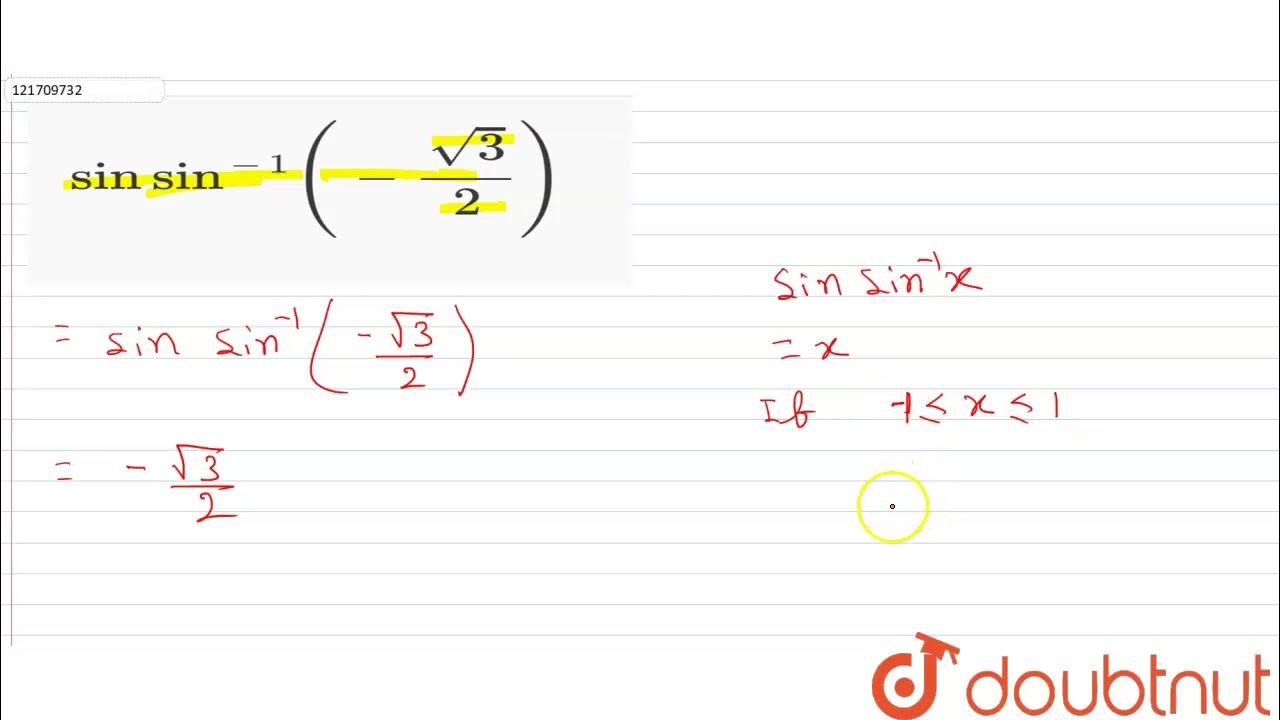 121709732
sin sin⁻¹(−√3/2)
= sin sin⁻¹(-√3/2)
= -√3/2
sin sin⁻¹x
= x
If -1 ≤ x ≤ 1
doubtnut